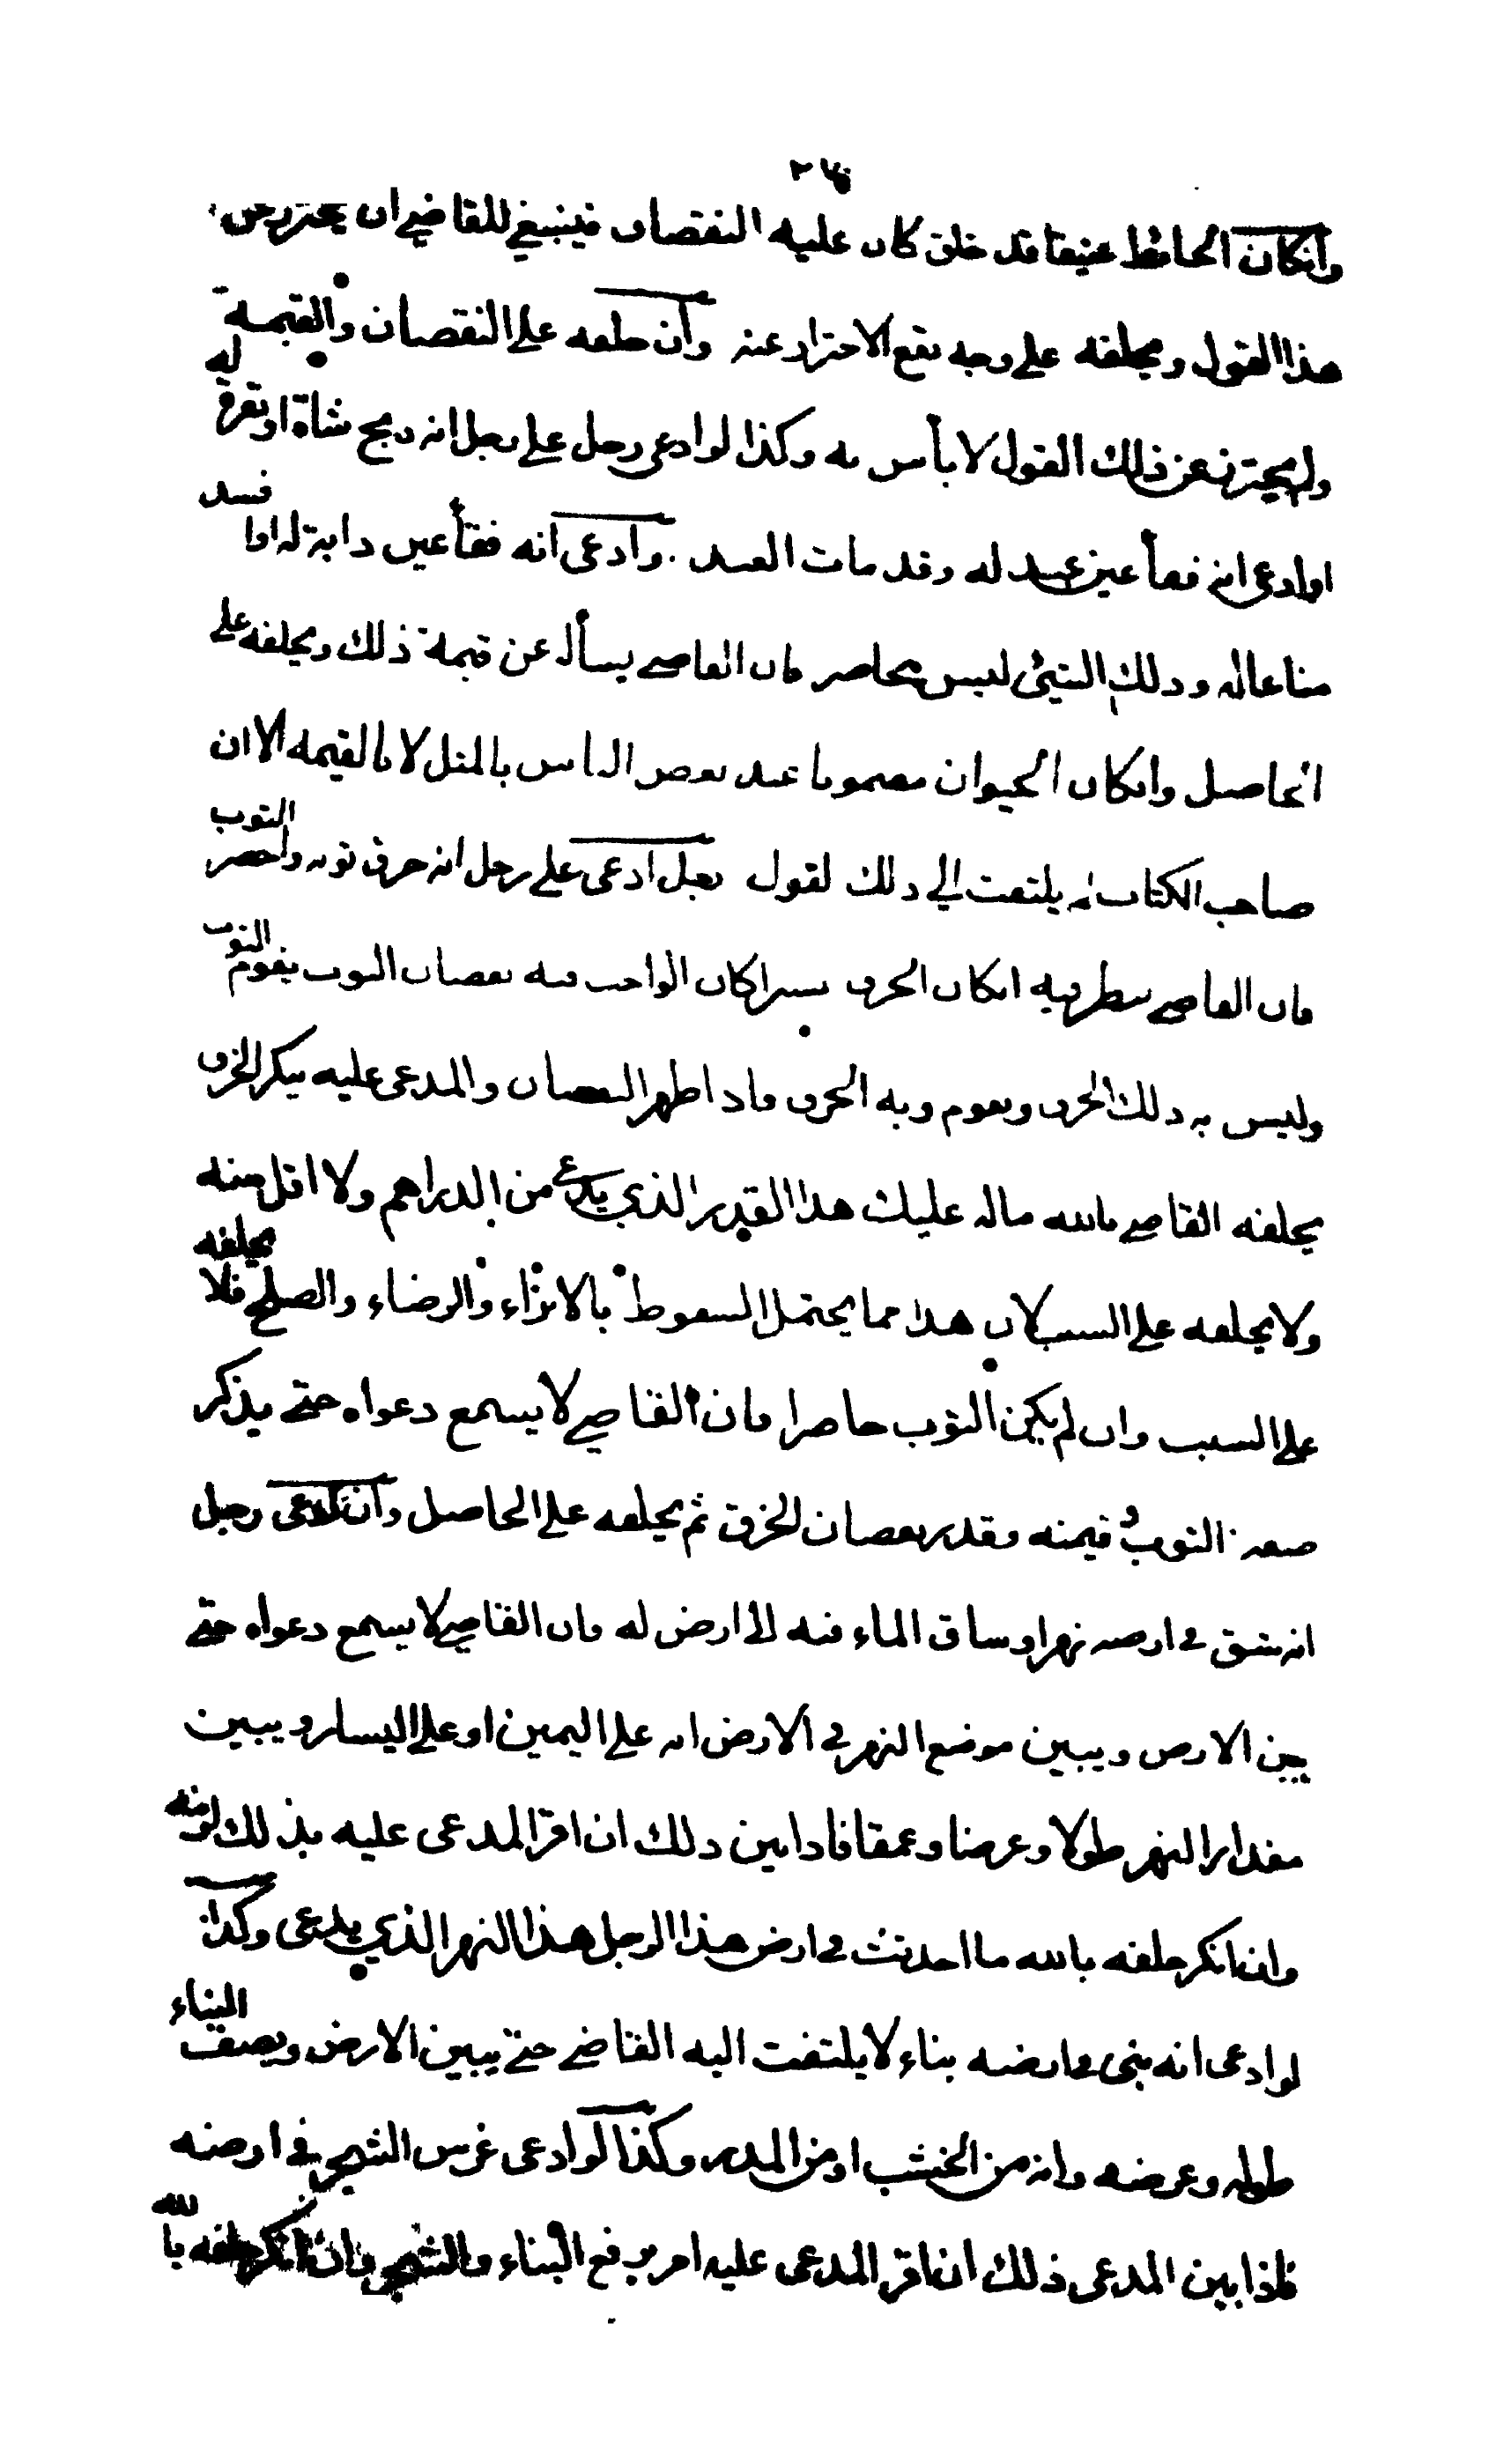 وانكان الحائط عتيقا قد خلق كان عليه النقصان فينبغي للقاضي ان يحترز عن
هذا القول ويحلفه على وجه يقع الاحتراز عنه وان حلفه على النقصان والقيمة
ولم يحترز عن ذلك القول لا بأس به وكذا لو ادعى رجل على رجل انه ذبح شاة او بقرة له
او ادعى انه فقأ عين عبد له وقد مات العبد وادعى انه فقأ عين دابة له او افسد
متاعا له وذلك الشيئ ليس بحاضر فان القاضي يسأله عن قيمة ذلك ويحلفه على
الحاصل وانكان الحيوان مضمونا عند بعض الناس بالمثل لا بالقيمة الا ان
صاحب الكتاب لم يلتفت الى ذلك القول رجل ادعى على رجل انه خرق ثوبه واحضر الثوب
فان القاضي ينظر فيه انكان الخرق يسيرا كان الواجب فيه نقصان الثوب يقوم الثوب
وليس به ذلك الخرق ويقوم وبه الخرق فاذا ظهر النقصان والمدعى عليه ينكر الخرق
يحلفه القاضي بالله ماله عليك هذا القدر الذي يدعي من الدراهم ولا اقل منه
ولا يحلفه على السبب لان هذا مما يحتمل السقوط بالابراء والرضاء والصلح فلا يحلفه
على السبب وان لم يكن الثوب حاضرا فان القاضي لا يسمع دعواه حتى يذكر
صفة الثوب وقيمته وقدر نقصان الخرق ثم يحلفه على الحاصل وان ادعى رجل
انه شق في ارضه نهرا وساق الماء فيه الى ارض له فان القاضي لا يسمع دعواه حتى
يبين الارض ويبين موضع النهر في الارض انه على اليمين او على اليسار ويبين
مقدار النهر طولا وعرضا وعمقا فاذا بين ذلك ان اقر المدعى عليه بذلك لزمه
وان انكر حلفه بالله ما احدثت في ارض هذا الرجل هذا النهر الذي يدعى وكذا
لو ادعى انه بنى في ارضه بناء لا يلتفت اليه القاضي حتى يبين الارض ويصف البناء
طوله وعرضه وانه من الخشب او من المدر وكذا لو ادعى غرس الشجر في ارضه
فاذا بين المدعى ذلك ان اقر المدعى عليه امر برفع البناء والشجر وان انكر حلفه بالله